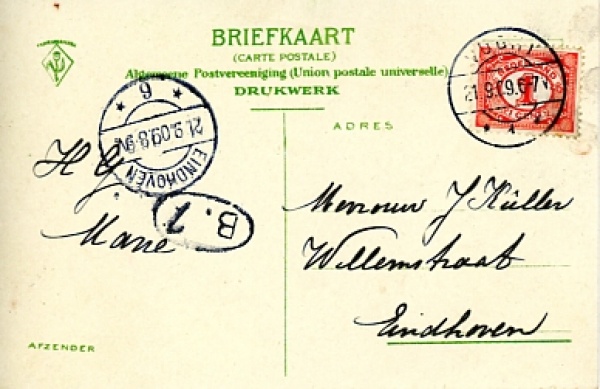 BRIEFKAART
(CARTE POSTALE)
Algemeene Postvereeniging (Union postale universelle)
DRUKWERK
ADRES
VUGHT
21.9.09.6-7N
1
EINDHOVEN
21.9.09.8-9N
6
B.1
H G
Marie
Mevrouw J Küller
Willemstraat
Eindhoven
AFZENDER